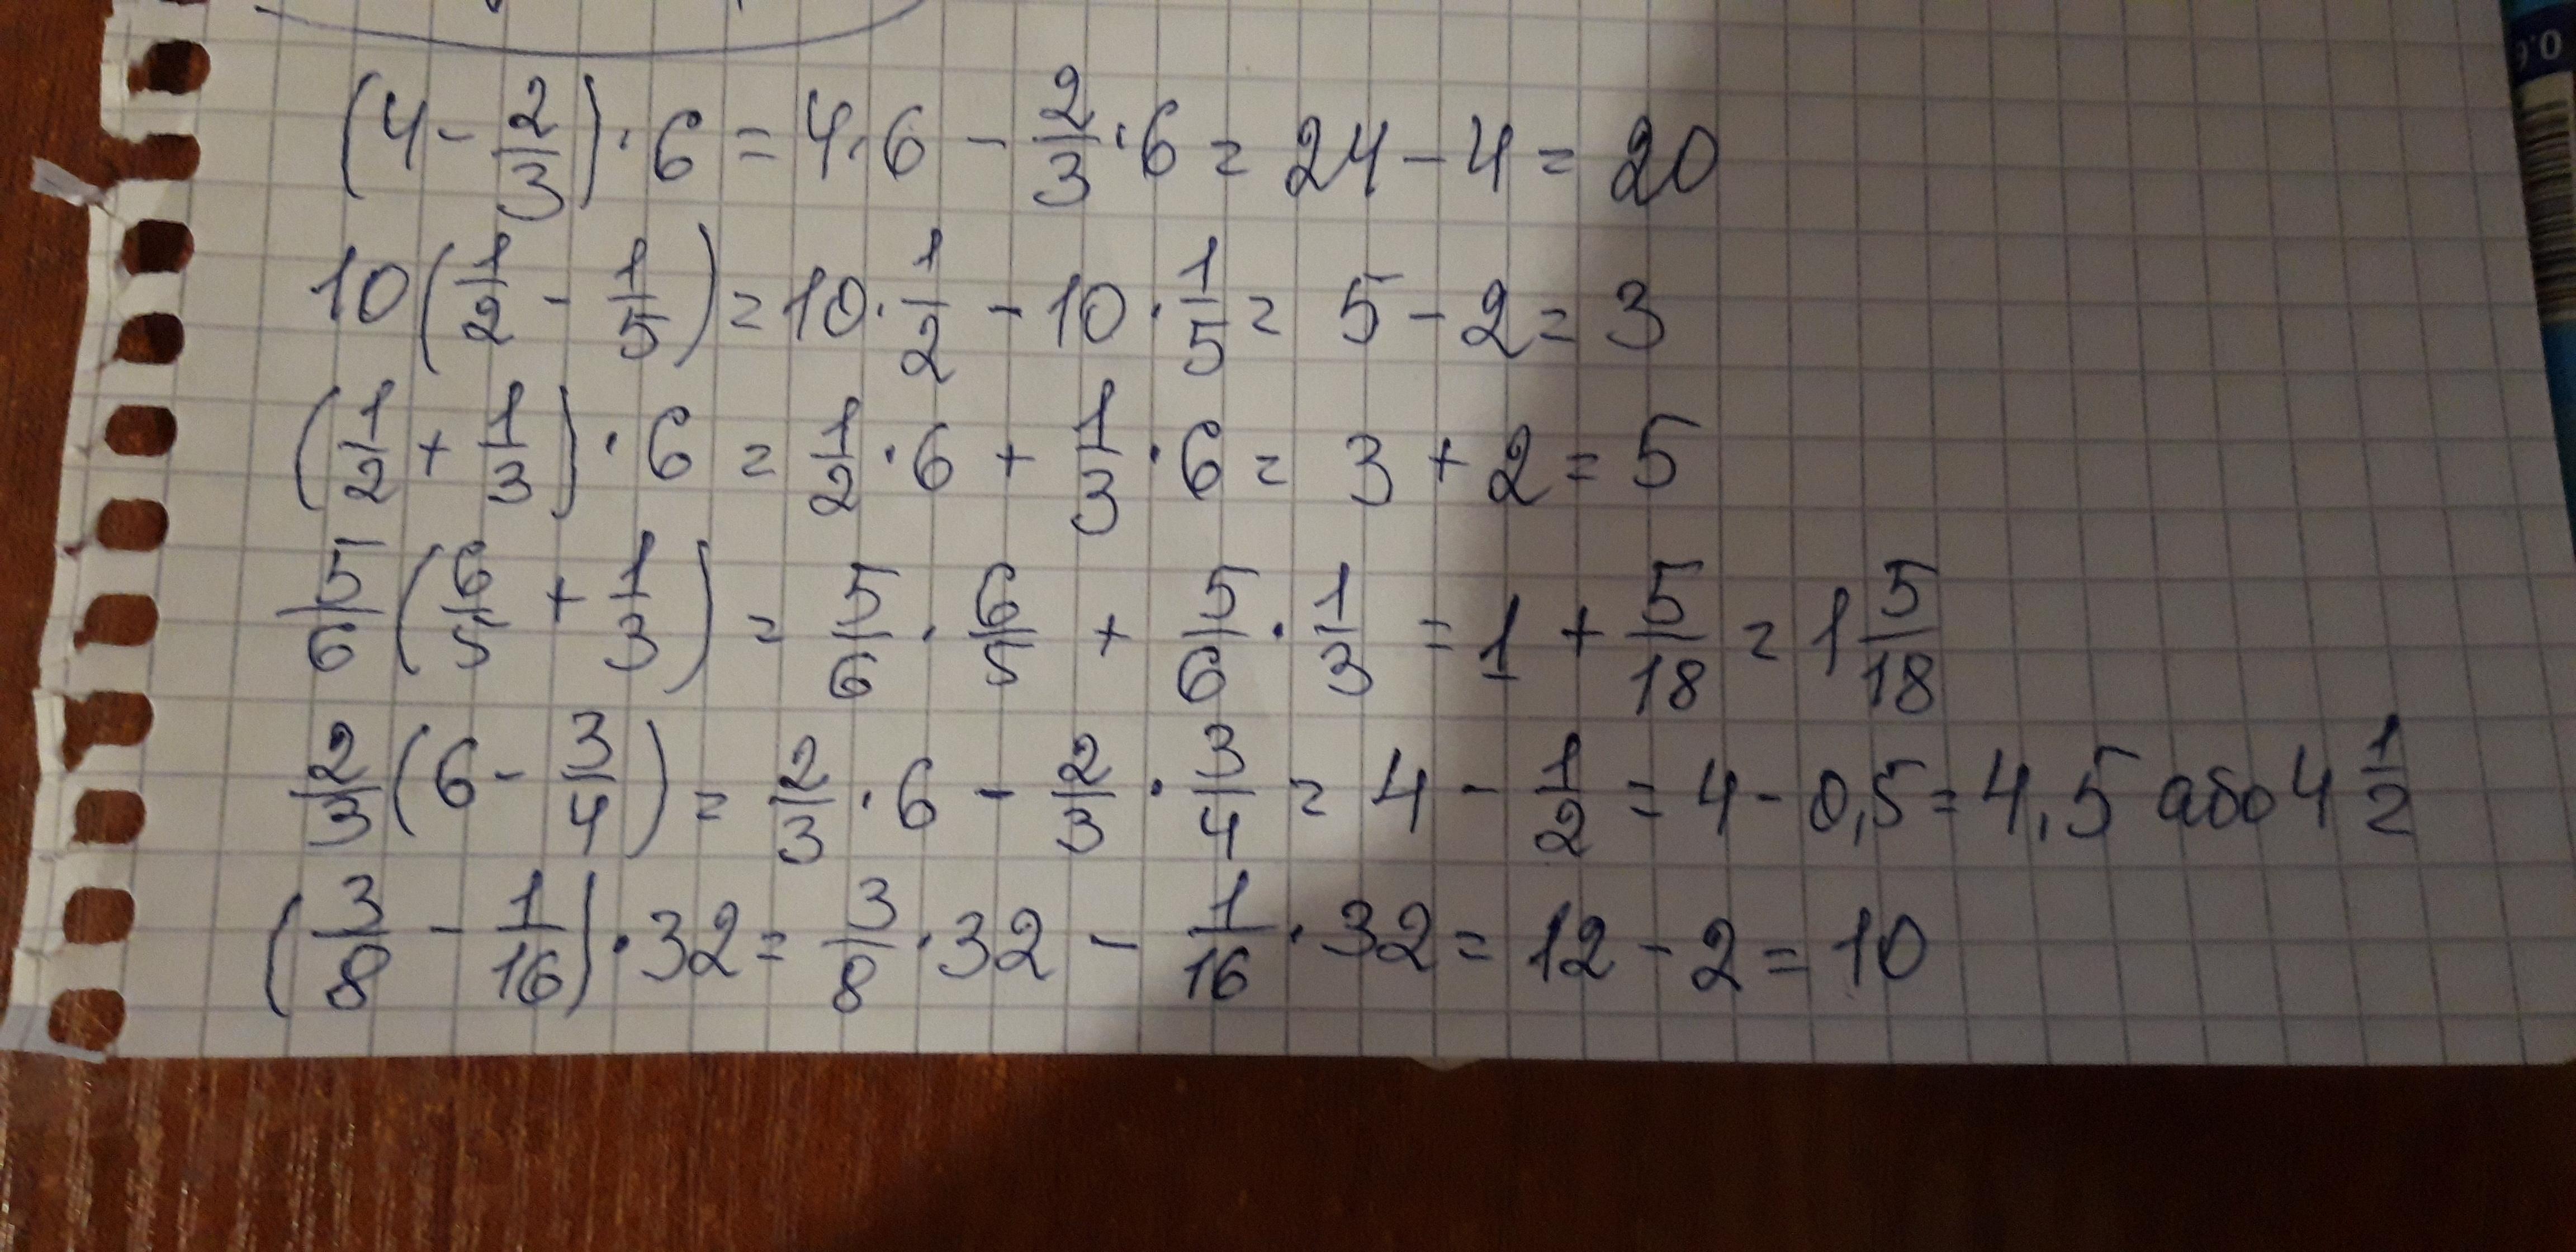 (4 - 2/3) · 6 = 4 · 6 - 2/3 · 6 = 24 - 4 = 20
10(1/2 - 1/5) = 10 · 1/2 - 10 · 1/5 = 5 - 2 = 3
(1/2 + 1/3) · 6 = 1/2 · 6 + 1/3 · 6 = 3 + 2 = 5
5/6(6/5 + 1/3) = 5/6 · 6/5 + 5/6 · 1/3 = 1 + 5/18 = 1 5/18
2/3(6 - 3/4) = 2/3 · 6 - 2/3 · 3/4 = 4 - 1/2 = 4 - 0,5 = 4,5 або 4 1/2
(3/8 - 1/16) · 32 = 3/8 · 32 - 1/16 · 32 = 12 - 2 = 10